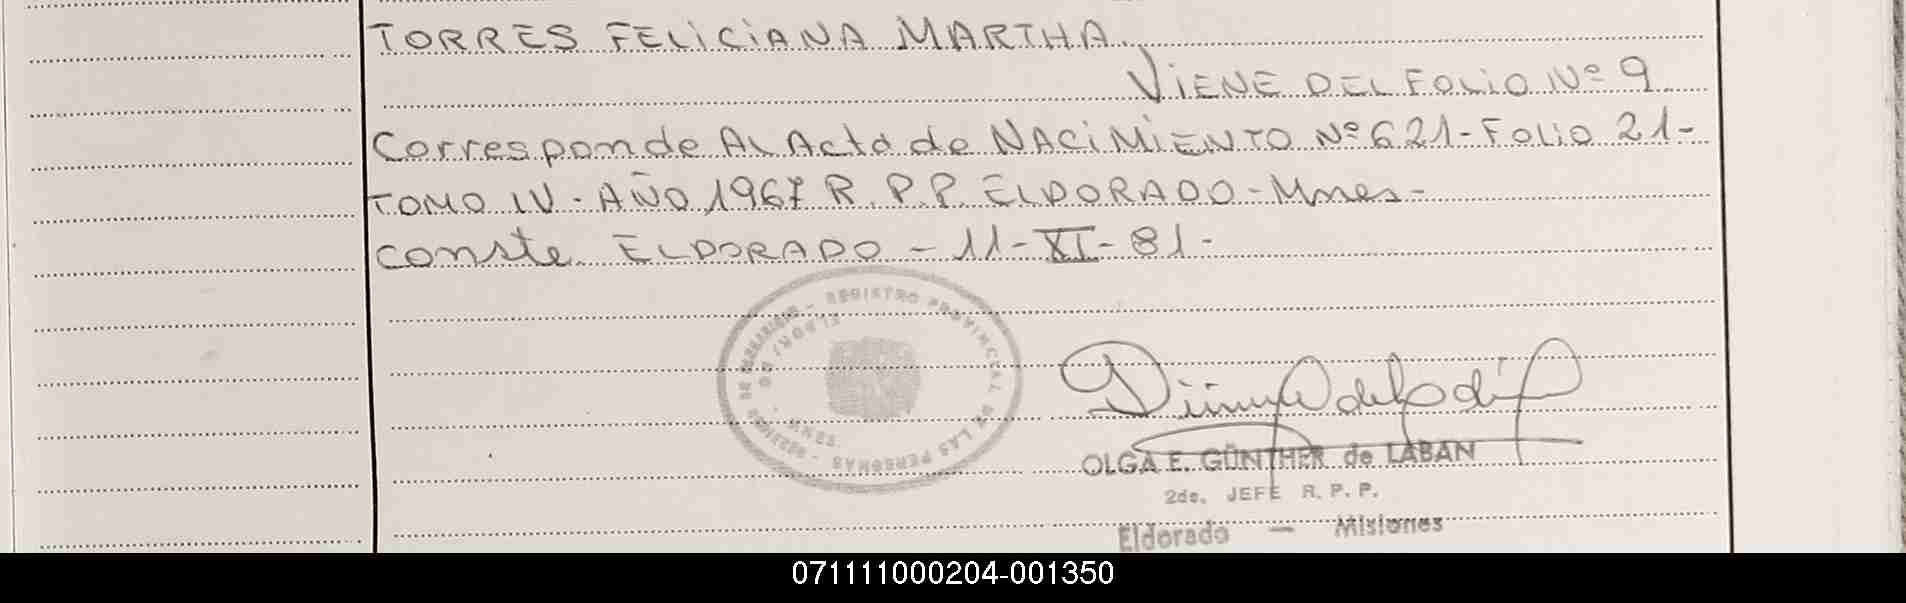 TORRES FELICIANA MARTHA.
VIENE DEL FOLIO Nº 9
Corresponde AL Acta de NACIMIENTO Nº 621 - FOLIO 21 -
TOMO IV - AÑO 1967 R. P. P. ELDORADO - Mnes -
conste ELDORADO - 11 - XI - 81 -
REGISTRO PROVINCIAL DE LAS PERSONAS
ELDORADO
MNES
OLGA E. GÜNTHER de LABAN
2do. JEFE R. P. P.
Eldorado — Misiones
071111000204-001350